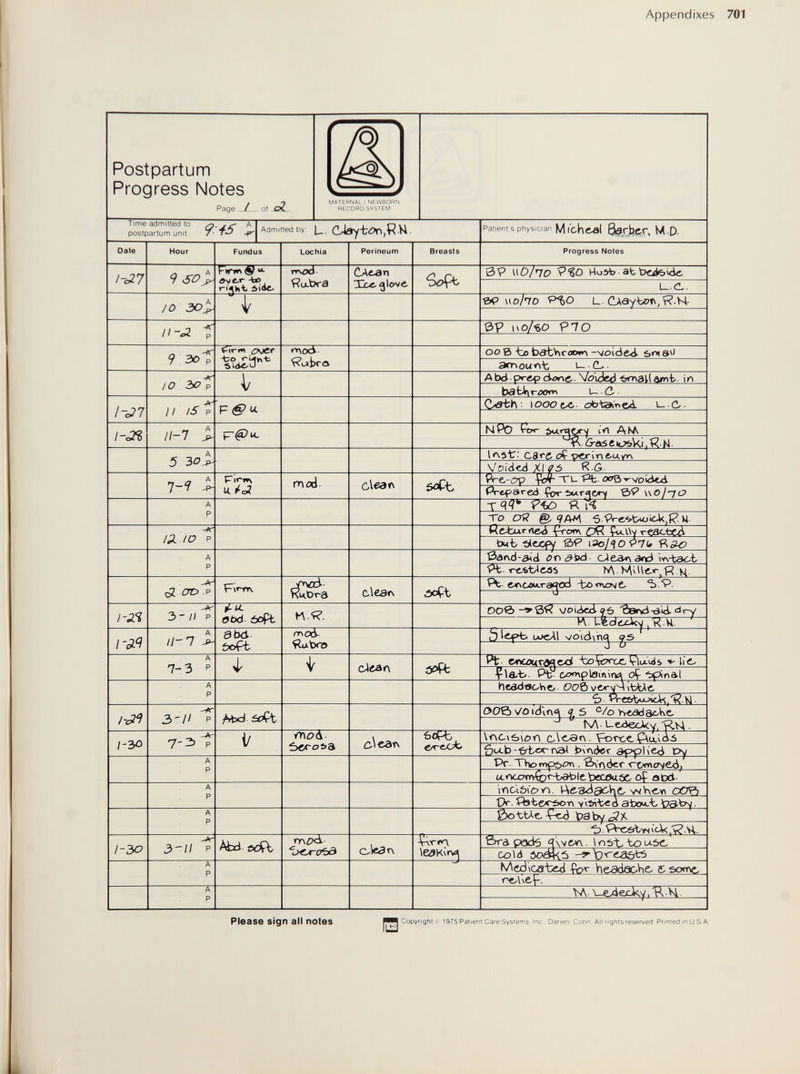 Appendixes 701
Postpartum
Progress Notes
Page 1 of 2
MATERNAL / NEWBORN
RECORD SYSTEM
Time admitted to postpartum unit 9:45 A P
Admitted by L. Clayton, R.N.
Patient's physician Micheal Barber, M.D.
Date Hour Fundus Lochia Perineum Breasts Progress Notes
1-27 9 50 A P Firm @ u over to right side mod. Rubra Clean Ice glove Soft BP 110/70 P80 Husb. at bedside
L.C.
10 30 A P ↓ BP 110/70 P80 L. Clayton, R.N.
11-2 A P BP 110/60 P70
9 30 A P Firm over to right side mod. Rubra OOB to bathroom - voided small
amount L.C.
10 30 A P ↓ Abd. prep done. Voided small amt. in
bathroom L.C.
1-27 11 15 A P F @ u Cath: 1000 cc. obtained L.C.
1-28 11-7 A P F@u NPO for surgery in AM
R. Grasewski, R.N.
5 30 A P Inst: care of perineum
Voided X1 R.G.
7-9 A P Firm mod. clean soft Pre-op for TL Pt. OOB + voided
Prepared for surgery BP 110/70
A P T 99 P80 R 18
To OR @ 9AM S. Prestwick, R.N.
12 10 A P Returned from OR fully reacted
but sleepy BP 120/90 P76 R20
A P Band-aid on abd. clean and intact
Pt. restless M. Miller, R.N.
2 00 A P Firm mod. Rubra clean soft Pt. encouraged to move S.P.
1-28 3-11 A P abd. soft M.R. OOB → BR voided Band-aid dry
M. Ledecky, R.N.
1-29 11-7 A P abd. soft mod. Rubra Slept well voiding
7-3 A P ↓ ↓ clean soft Pt. encouraged to force fluids + lie
flat. Pt. complaining of spinal
A P headache. OOB very little
S. Prestwick, R.N.
1-29 3-11 A P Abd. soft OOB voiding c/o headache
M. Ledecky, R.N.
1-30 7-3 A P ↓ mod. serosa clean soft, erect Incision clean. Force fluids
Sub-sternal binder applied by
A P Dr. Thompson. Binder removed,
uncomfortable because of abd.
A P incision. Headache when OOB
Dr. Peterson visited about baby.
A P Bottle fed baby 2X
S. Prestwick, R.N.
1-30 3-11 A P Abd. soft mod. serosa clean firm leaking Bra pads given. Inst. to use
cold soaks → breasts
A P Medicated for headache c some
relief.
A P M. Ledecky, R.N.
Please sign all notes
Copyright 1975 Patient Care Systems, Inc. Darien, Conn. All rights reserved. Printed in U.S.A.